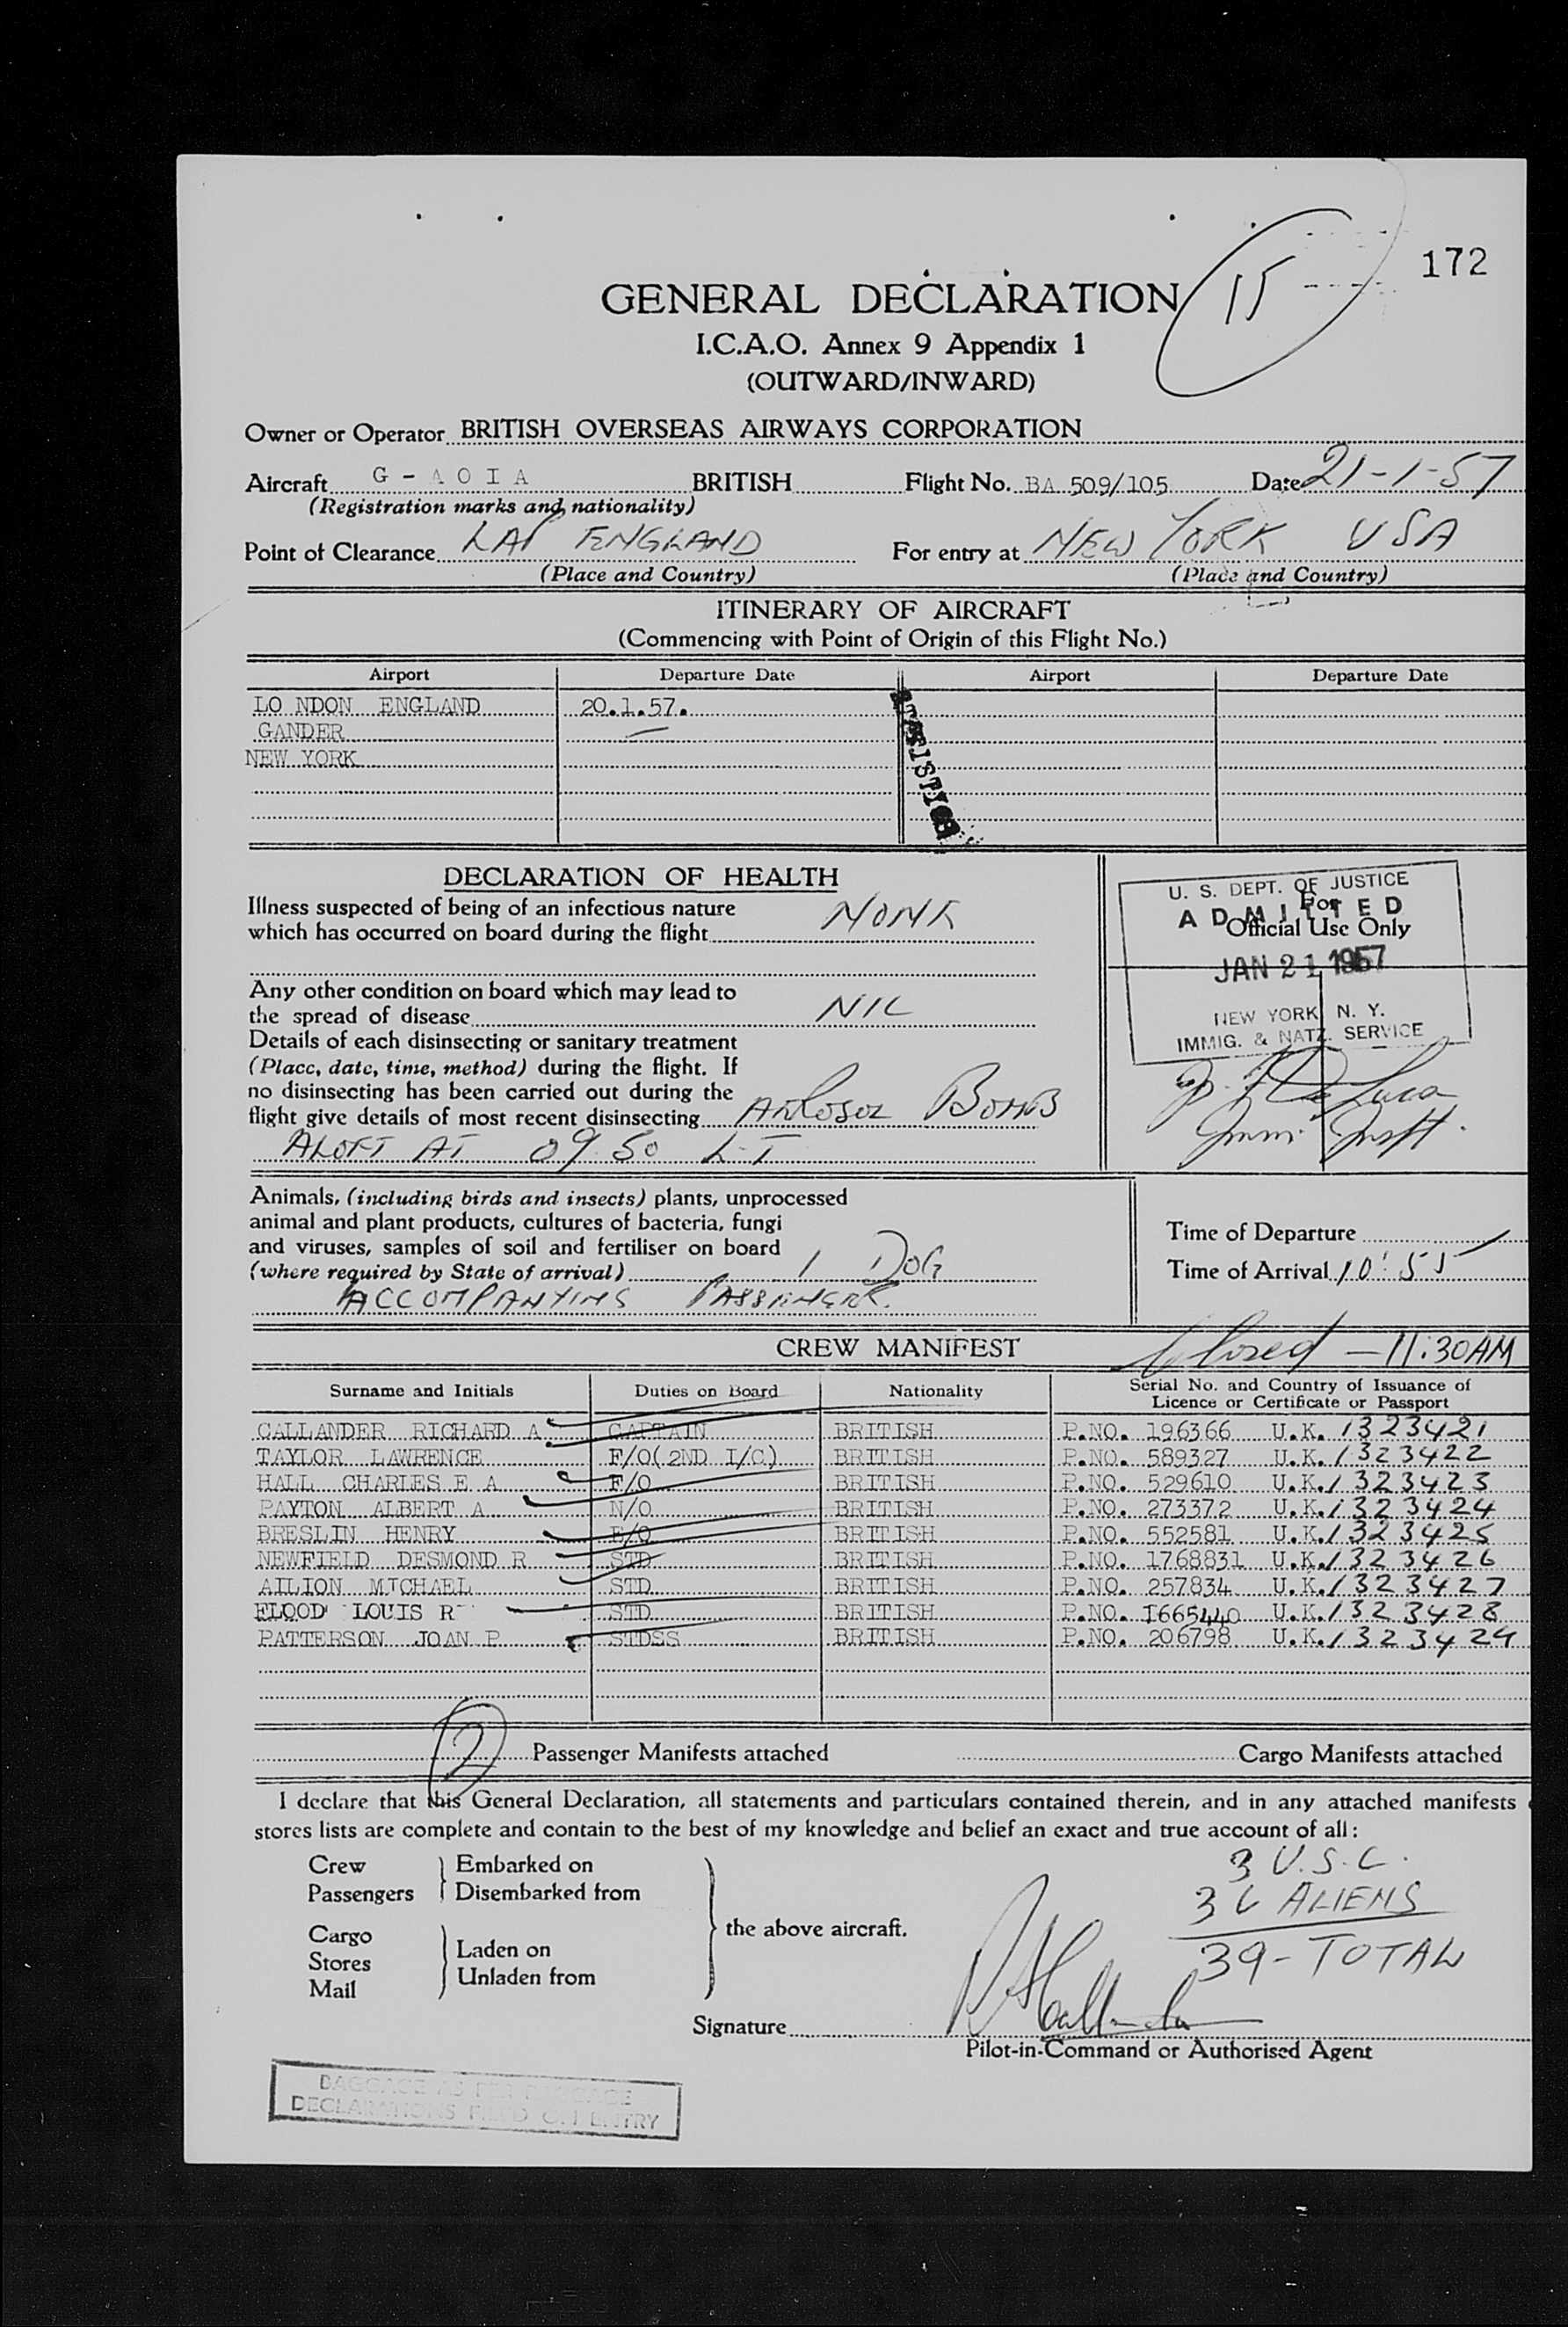 172
15
GENERAL DECLARATION
I.C.A.O. Annex 9 Appendix 1
(OUTWARD/INWARD)
Owner or Operator BRITISH OVERSEAS AIRWAYS CORPORATION
Aircraft G - A O I A BRITISH Flight No. BA 509/105 Date 21-1-57
(Registration marks and nationality)
Point of Clearance LAP ENGLAND For entry at NEW YORK USA
(Place and Country) (Place and Country)
ITINERARY OF AIRCRAFT
(Commencing with Point of Origin of this Flight No.)
Airport Departure Date Airport Departure Date
LO NDON ENGLAND 20.1.57.
GANDER —
NEW YORK
STATISTICS
DECLARATION OF HEALTH
Illness suspected of being of an infectious nature
which has occurred on board during the flight NONE
Any other condition on board which may lead to
the spread of disease NIL
Details of each disinsecting or sanitary treatment
(Place, date, time, method) during the flight. If
no disinsecting has been carried out during the
flight give details of most recent disinsecting AEROSOL BOMB
ALOFT AT 09.50 L.T
For
Official Use Only
U. S. DEPT. OF JUSTICE
ADMITTED
JAN 21 1957
NEW YORK, N. Y.
IMMIG. & NATZ. SERVICE
Imm. Inspt.
Animals, (including birds and insects) plants, unprocessed
animal and plant products, cultures of bacteria, fungi
and viruses, samples of soil and fertiliser on board
(where required by State of arrival) 1 DOG
ACCOMPANYING PASSENGER.
Time of Departure
Time of Arrival 10:55
CREW MANIFEST Closed — 11:30AM
Surname and Initials Duties on Board Nationality Serial No. and Country of Issuance of
Licence or Certificate or Passport
CALLANDER RICHARD A. CAPTAIN BRITISH P.NO. 196366 U.K. 1323421
TAYLOR LAWRENCE F/O(2ND I/C) BRITISH P.NO. 589327 U.K. 1323422
HALL CHARLES E A F/O BRITISH P.NO. 529610 U.K. 1323423
PAYTON ALBERT A N/O BRITISH P.NO. 273372 U.K. 1323424
BRESLIN HENRY E/O BRITISH P.NO. 552581 U.K. 1323425
NEWFIELD DESMOND R STD BRITISH P.NO. 1768831 U.K. 1323426
AILION MICHAEL STD BRITISH P.NO. 257834 U.K. 1323427
FLOOD LOUIS R STD BRITISH P.NO. I665440 U.K. 1323428
PATTERSON JOAN P STDSS BRITISH P.NO. 206798 U.K. 1323429
2 Passenger Manifests attached Cargo Manifests attached
I declare that this General Declaration, all statements and particulars contained therein, and in any attached manifests
stores lists are complete and contain to the best of my knowledge and belief an exact and true account of all:
Crew Embarked on
Passengers Disembarked from
Cargo
Stores Laden on
Mail Unladen from
the above aircraft.
3 U.S.C.
36 ALIENS
39 - TOTAL
Signature RACallander
Pilot-in-Command or Authorised Agent
BAGGAGE AS PER BAGGAGE
DECLARATIONS FILED ON ENTRY